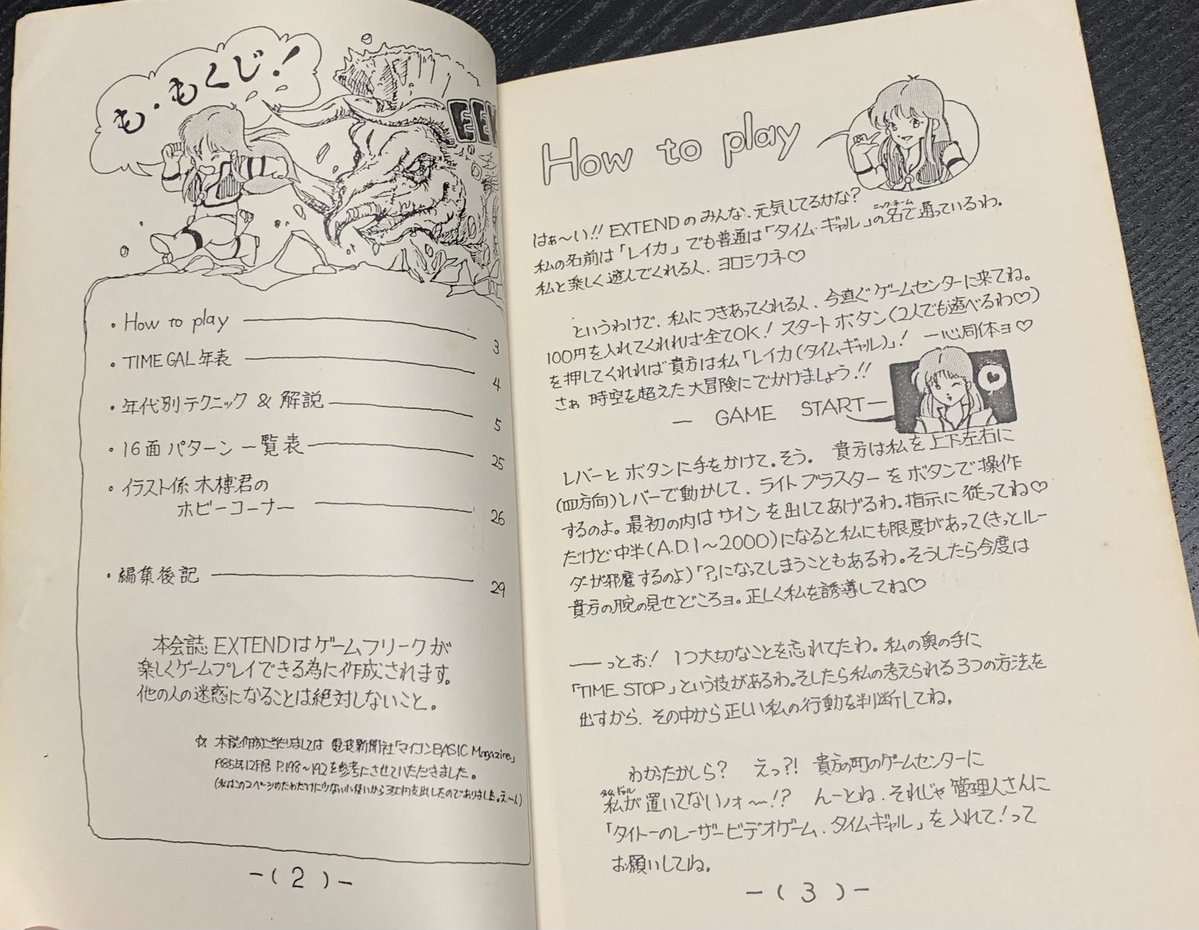 も・もくじ!
EEK
・How to play 3
・TIME GAL年表 4
・年代別テクニック & 解説 5
・16面パターン一覧表 25
・イラスト係 木槫君の
ホビーコーナー 26
・編集後記 29
本会誌 EXTENDはゲームフリークが
楽しくゲームプレイできる為に作成されます。
他の人の迷惑になることは絶対しないこと。
☆ 本誌作成に当りましては 電波新聞社「マイコンBASIC Magazine」
1985年12月号 P.198〜192を参考にさせていただきました。
-(2)-
How to play
はぁ〜い!! EXTENDのみんな、元気してるかな?
私の名前は「レイカ」でも普通は「タイム・ギャル」の名で通っているわ。
ニックネーム
私と楽しく遊んでくれる人、ヨロシクネ♡
というわけで、私につきあってくれる人、今直ぐゲームセンターに来てね。
100円を入れてくれれば全てOK! スタートボタン(2人でも遊べるわ♡)
を押してくれれば貴方は私「レイカ(タイムギャル)」! 一心同体ョ♡
さぁ 時空を超えた大冒険にでかけましょう!!
— GAME START —
レバーとボタンに手をかけて。そう。 貴方は私を上下左右に
(四方向)レバーで動かして、ライトブラスターをボタンで操作
するのよ。最初の内はサインを出してあげるわ。指示に従ってね♡
だけど中半(A.D.1〜2000)になると私にも限度があって(きっとルー
ダが邪魔するのよ)「?」になってしまうこともあるわ。そうしたら今度は
貴方の腕の見せどころョ。正しく私を誘導してね♡
——っとお! 1つ大切なことを忘れてたわ。私の奥の手に
「TIME STOP」という技があるわ。そしたら私の考えられる3つの方法を
出すから、その中から正しい私の行動を判断してね。
わかったかしら? えっ?! 貴方の町のゲームセンターに
私が置いてないノォ〜!? んーとね、それじゃ管理人さんに
「タイトーのレーザービデオゲーム、タイムギャル」を入れて!って
お願いしてね。
-(3)-